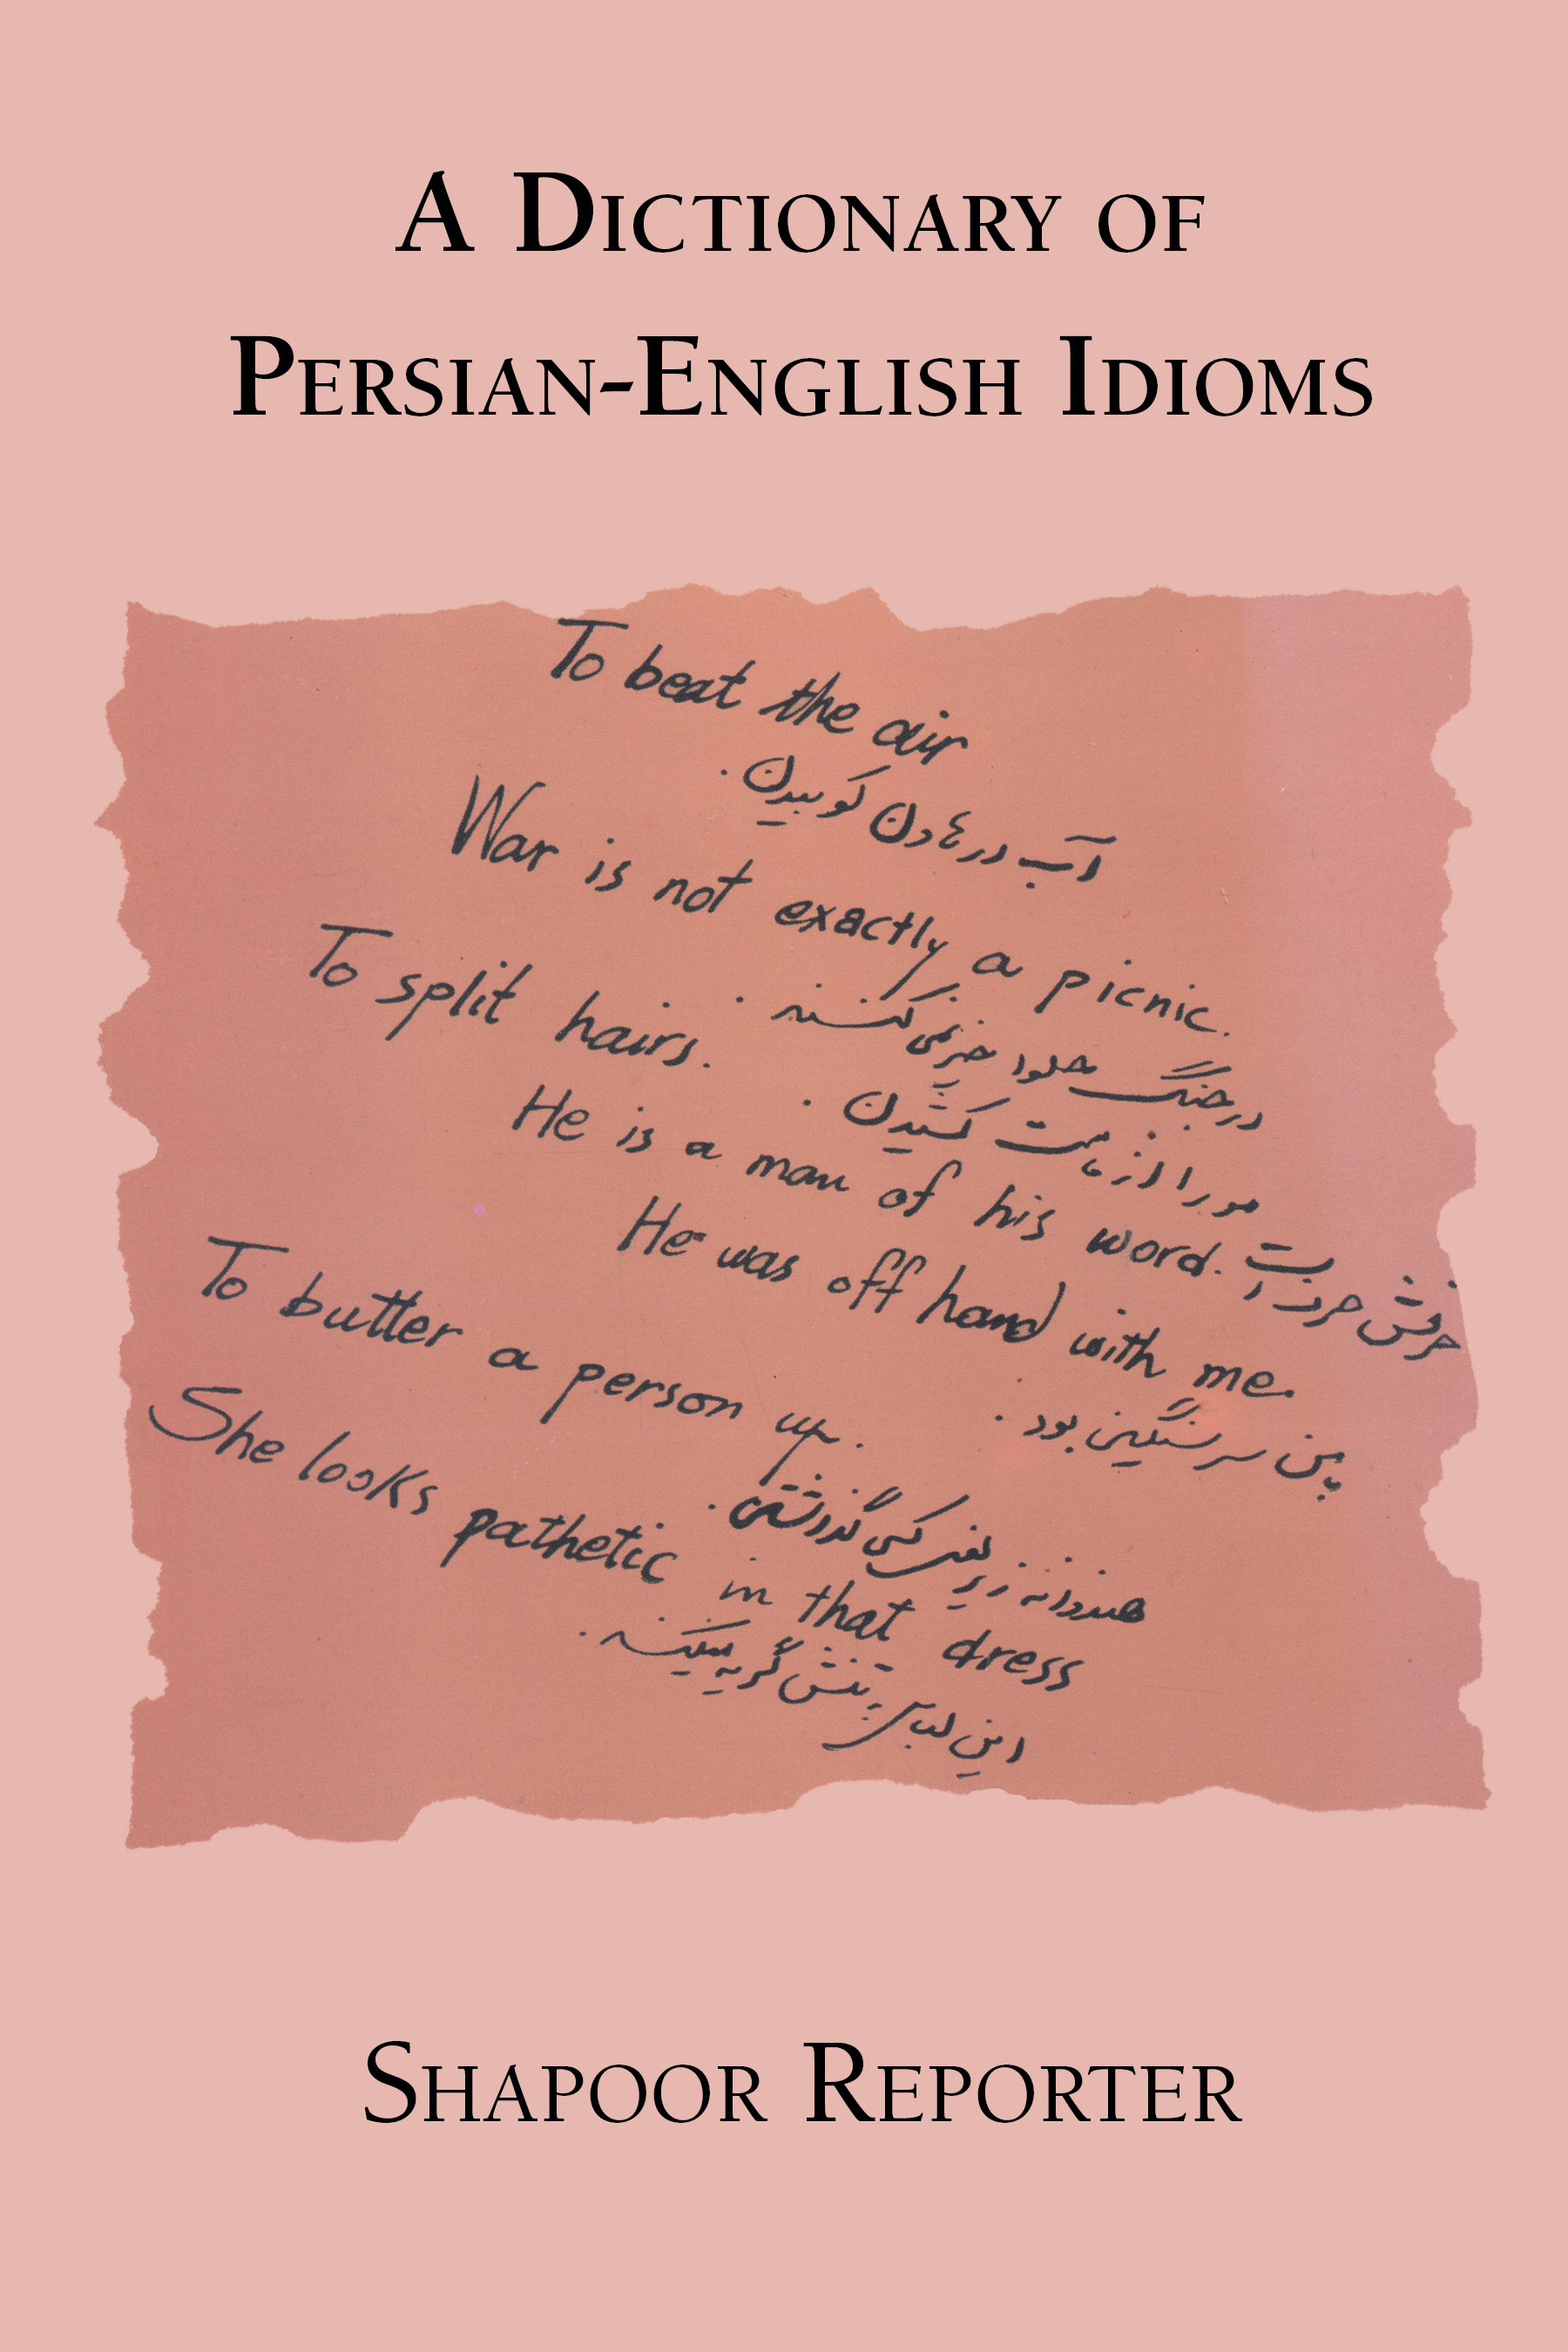 A Dictionary of
Persian-English Idioms
To beat the air
آب در هاون کوبیدن.
War is not exactly a picnic.
در جنگ حلوا خیر نمی کنند.
To split hairs.
مو را از ماست کشیدن.
He is a man of his word.
حرفش حرف است
He was off hand with me.
با من سر سنگین بود.
To butter a person up.
هندوانه زیر بغل کسی گذاشتن.
She looks pathetic in that dress
این لباس به تنش گریه میکند.
Shapoor Reporter